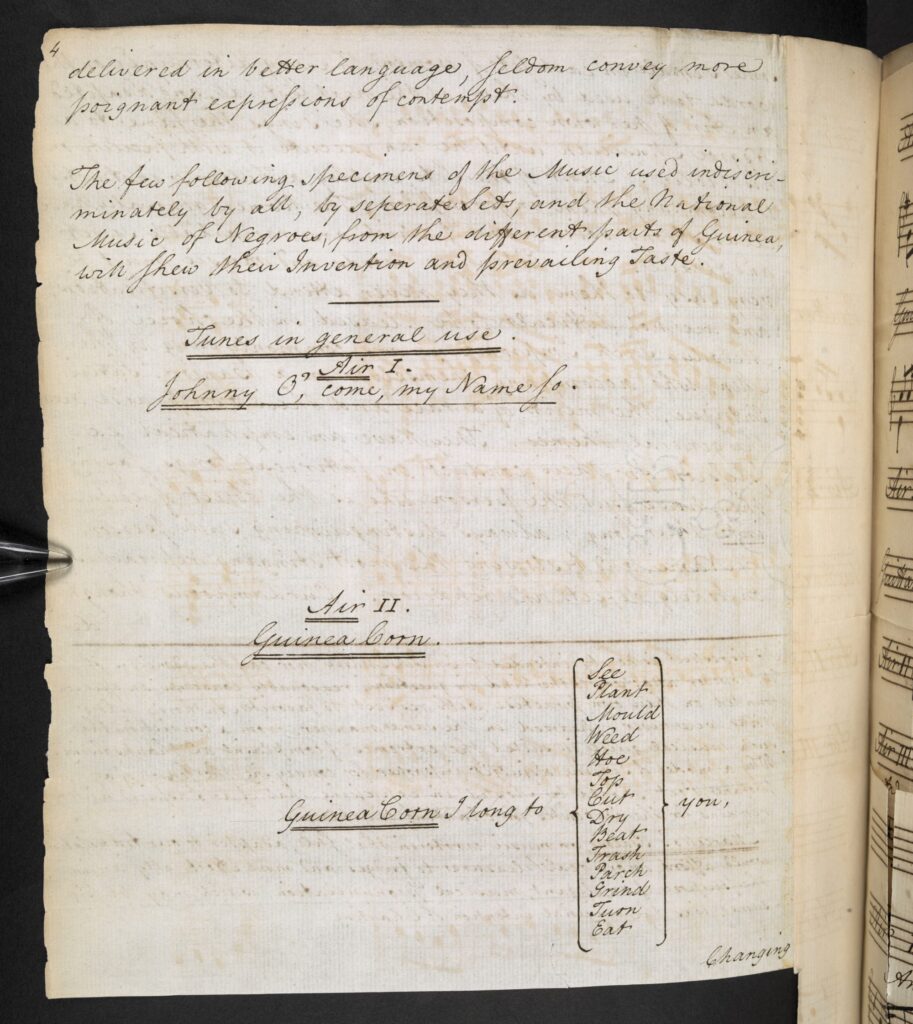 4
delivered in better language, seldom convey more
poignant expressions of contempt.
The few following specimens of the Music used indiscri-
minately by all, by seperate Sets, and the National
Music of Negroes, from the different parts of Guinea,
will shew their Invention and prevailing Taste.
Tunes in general use.
Air I.
Johnny O', come, my Name so.
Air II.
Guinea Corn.
See
Plant
Mould
Weed
Hoe
Top
Guinea Corn I long to { Cut } you,
Dry
Beat
Trash
Parch
Grind
Turn
Eat
Changing